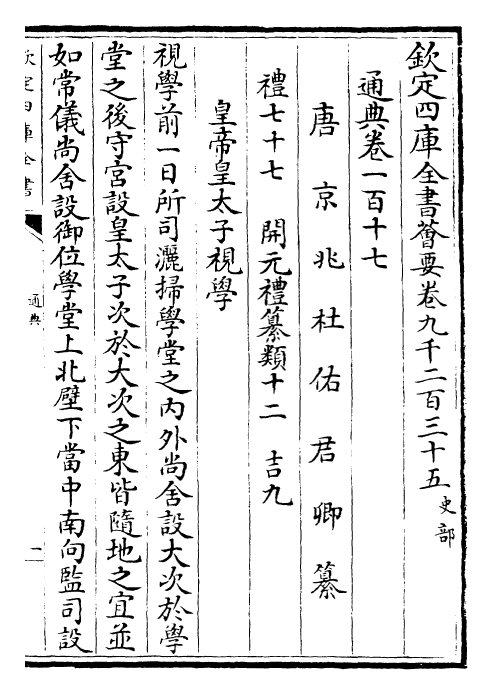 欽定四庫全書薈要卷九千二百三十五 史部
通典卷一百十七
唐京兆杜佑君卿纂
禮七十七 開元禮纂類十二 吉九
皇帝皇太子視學
視學前一日所司灑掃學堂之內外尚舍設大次於學
堂之後守宮設皇太子次於大次之東皆隨地之宜並
如常儀尚舍設御位學堂上北壁下當中南向監司設
欽定四庫全書
通典
二